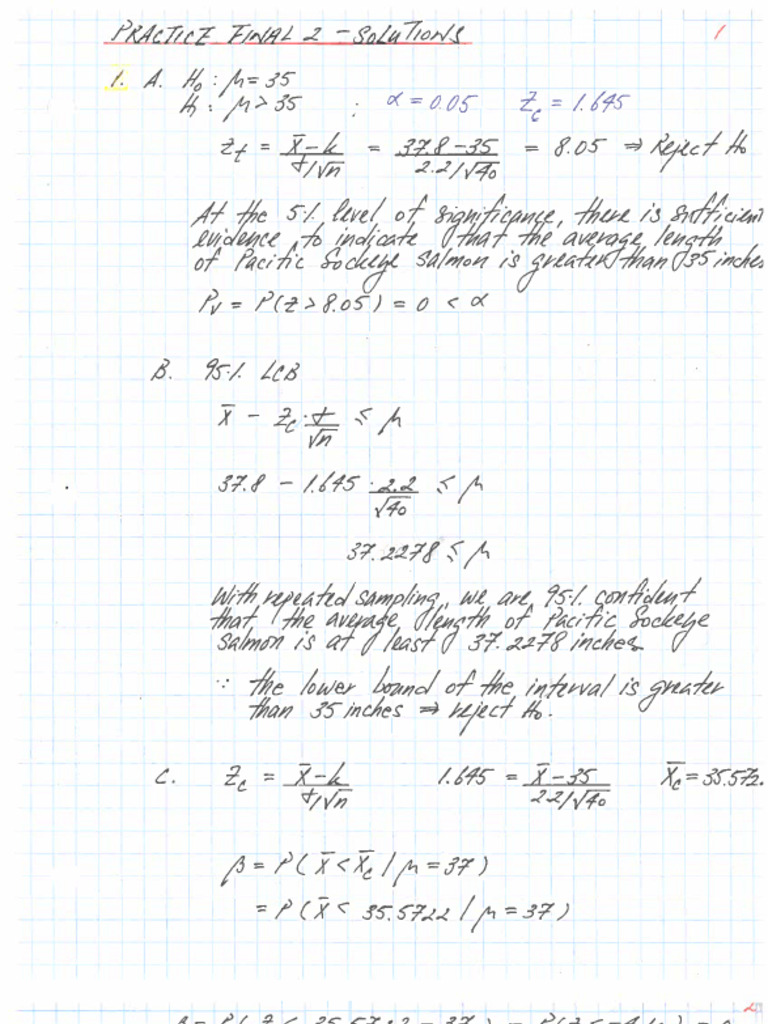 PRACTICE FINAL 2 - SOLUTIONS 1
1. A. H₀ : μ = 35
H₁ : μ > 35 ; α = 0.05 Z_c = 1.645
Z_t = (x̄ - k)/(σ/√n) = (37.8 - 35)/(2.2/√40) = 8.05 ⇒ Reject H₀
At the 5% level of significance, there is sufficient
evidence to indicate that the average length
of Pacific Sockeye Salmon is greater than 35 inches
P_V = P(Z > 8.05) = 0 < α
B. 95% LCB
x̄ - Z_c · σ/√n ≤ μ
37.8 - 1.645 · 2.2/√40 ≤ μ
37.2278 ≤ μ
With repeated sampling, we are 95% confident
that the average length of Pacific Sockeye
Salmon is at least 37.2278 inches
∵ the lower bound of the interval is greater
than 35 inches ⇒ reject H₀.
C. Z_c = (x̄ - k)/(σ/√n) 1.645 = (x̄ - 35)/(2.2/√40) x̄_c = 35.572
β = P(x̄ < x̄_c / μ = 37)
= P(x̄ < 35.5722 / μ = 37)
2